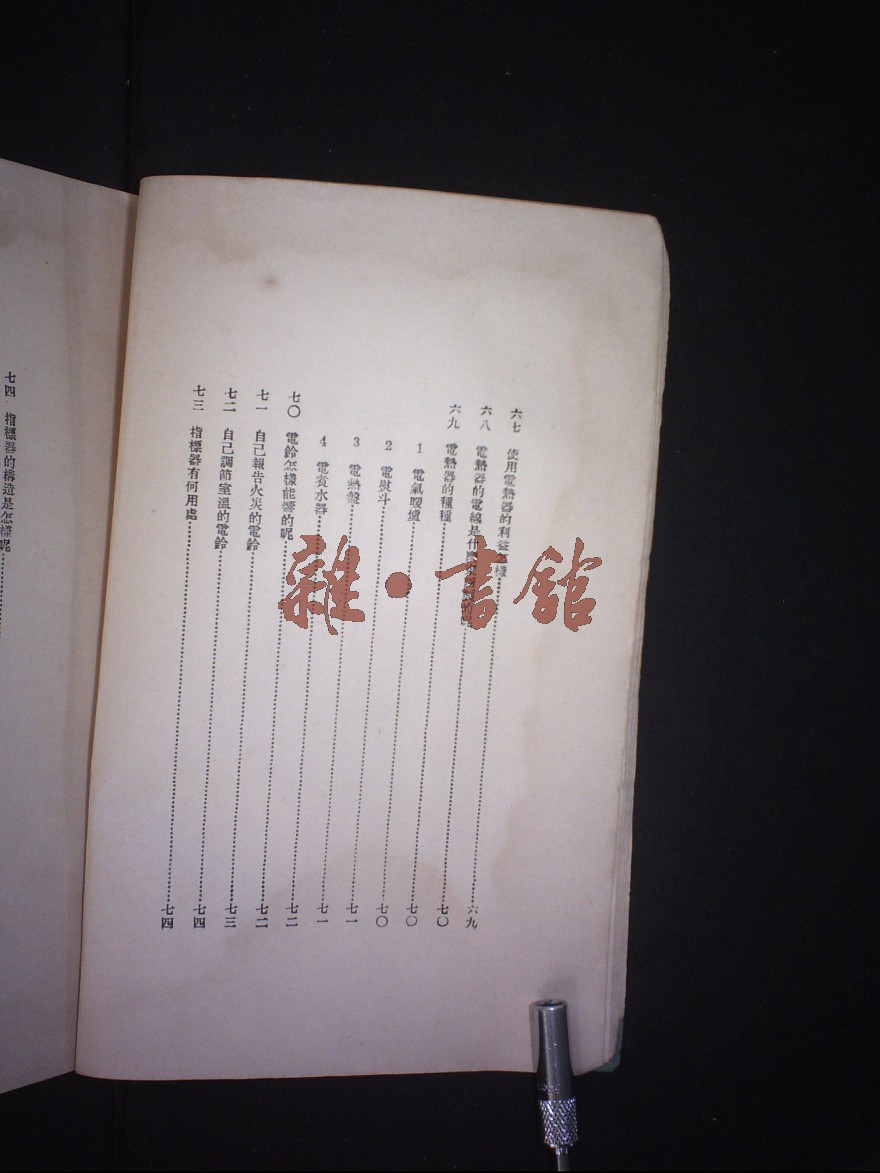 六七 使用電熱器的利益怎樣……六九
六八 電熱器的電線是什麼……七〇
六九 電熱器的種種……七〇
1 電氣暖爐……七〇
2 電熨斗……七一
3 電熱盤……七一
4 電煮水器……七二
七〇 電鈴怎樣能響的呢……七二
七一 自己報告火災的電鈴……七三
七二 自己調節室溫的電鈴……七四
七三 指標器有何用處……七四
七四 指標器的構造是怎樣呢……
雜·書館